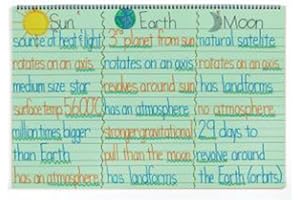 Sun Earth Moon
source of heat & light 3rd planet from sun natural satellite
rotates on an axis rotates on an axis rotates on an axis.
medium size star revolves around sun has landforms
surface temp. 5600°C has an atmosphere no atmosphere
million times bigger stronger gravitational 29 days to
than Earth pull than the moon revolve around
has an atmosphere has landforms the Earth (orbits)